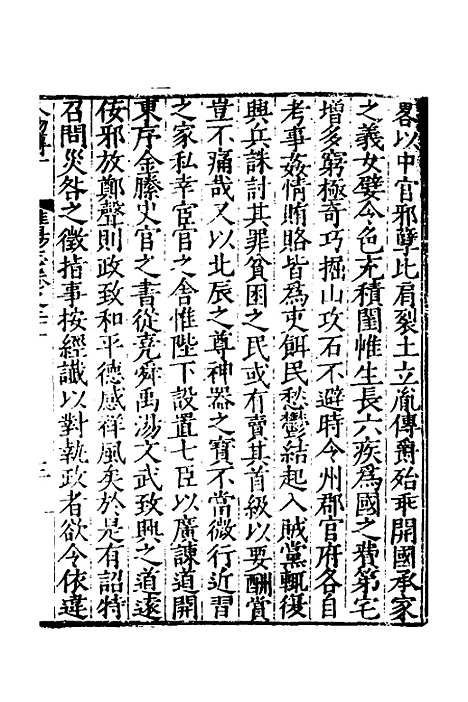 畧以中官邪孽比肩裂土立胤傳爵殆乖開國承家
之義女嬖令色充積閨帷生長六疾爲國之費第宅
增多窮極奇巧掘山攻石不避時令州郡官府各自
考事姦情賄賂皆爲吏餌民愁鬱結起入賊黨輒復
興兵誅討其罪貧困之民或有賣其首級以要酬賞
豈不痛哉又以北辰之尊神器之寳不當微行近習
之家私幸宦官之舍惟陛下設置七臣以廣諫道開
東序金縢史官之書從堯舜禹湯文武致興之道遠
佞邪放鄭聲則政致和平德感祥風矣於是有詔特
召問災咎之徵指事按經讖以對執政者欲令依違